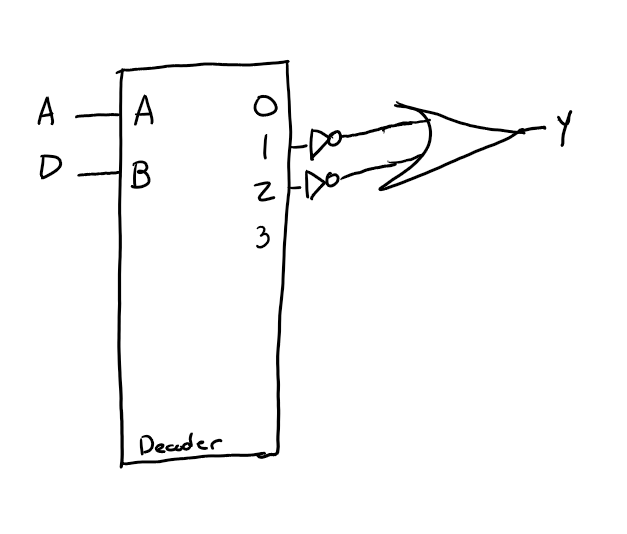 A
D
A
B
0
1
2
3
Y
Decoder